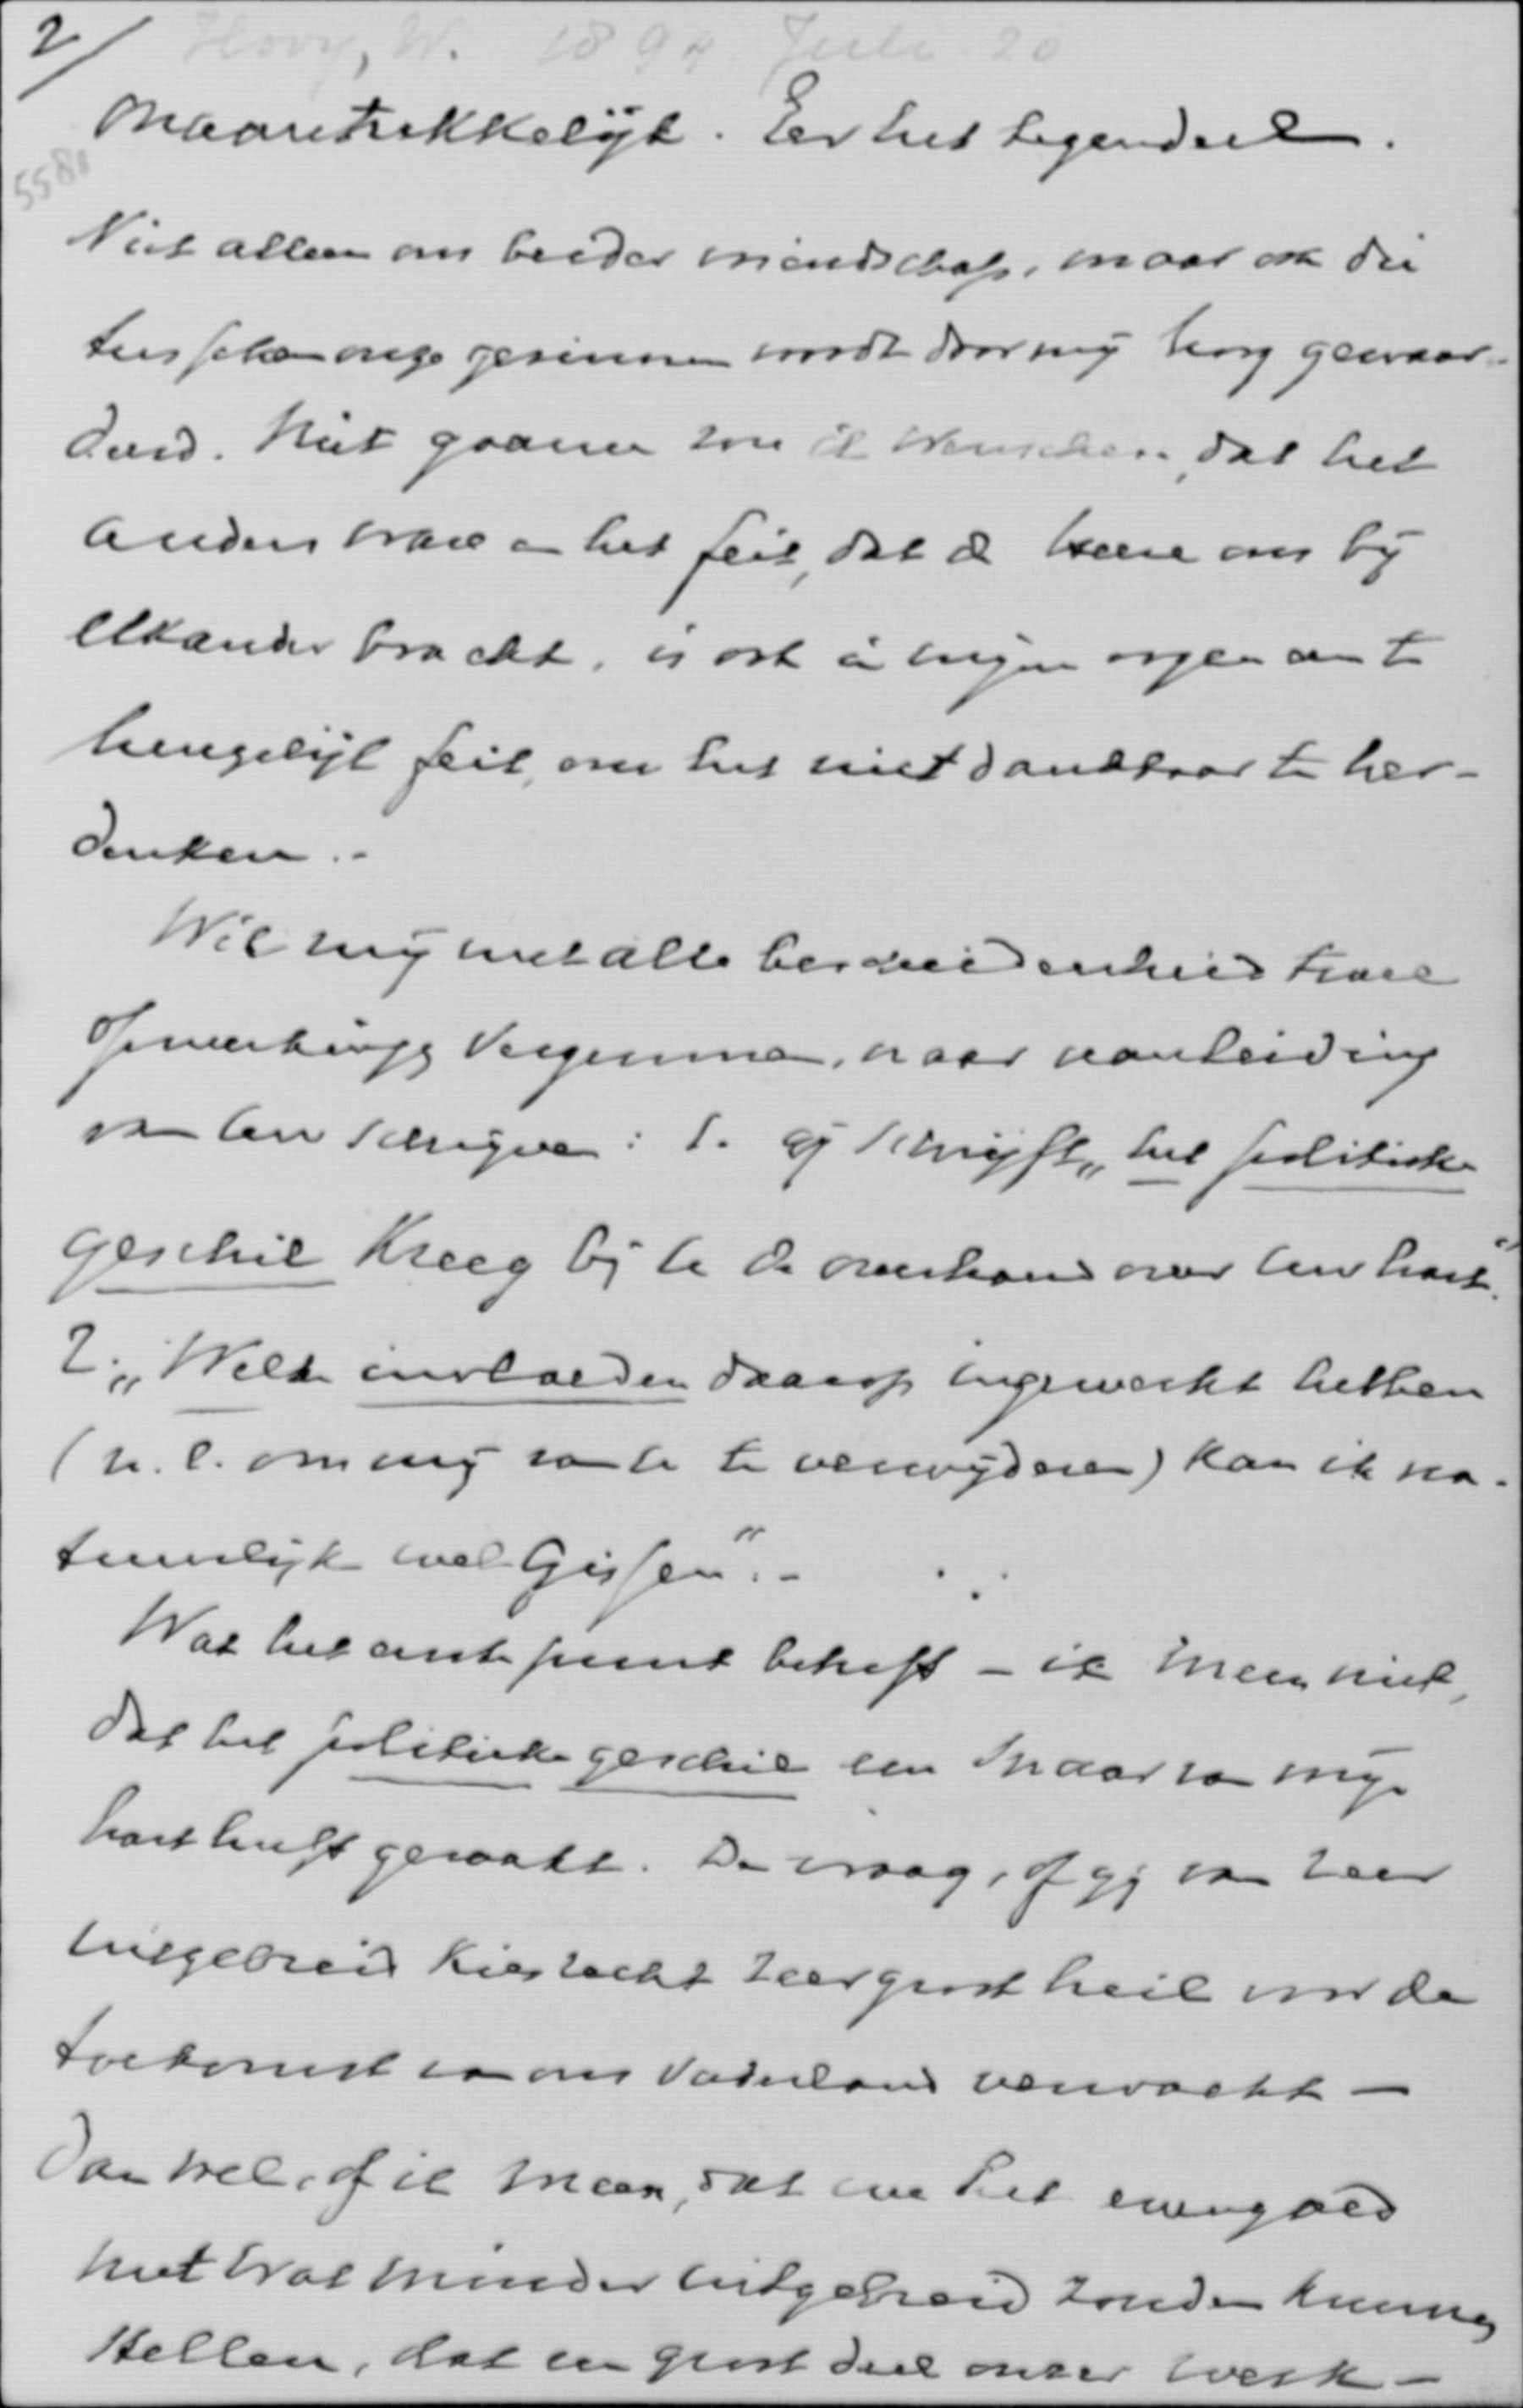 2/ Hovy, W. 1894 Juli 20
5581
onaantrekkelijk. Eer het tegendeel.
Niet alleen ons beider vriendschap, maar ook die
tusschen onze gezinnen wordt door mij hoog gewaar-
deerd. Niet gaarne zou ik wenschen, dat het
anders ware en het feit, dat de Heere ons bij
elkander bracht, is ook in mijne oogen een te
heugelijk feit, om het niet dankbaar te her-
denken.-
Wil mij met alle bescheidenheid twee
opmerkingen vergunnen, naar aanleiding
van Uw schrijven: 1. Gij schrijft „het politieke
geschil kreeg bij U de overhand over Uw hart."
2. „Welke invloeden daarop ingewerkt hebben
(n.l. om mij van U te verwijderen) kan ik na-
tuurlijk wel gissen".-
Wat het eerste punt betreft - ik meen niet,
dat het politieke geschil een snaar van mijn
hart heeft geraakt. De vraag, of gij van zeer
uitgebreid kiesrecht zeer groot heil voor de
toekomst van ons Vaderland verwacht -
dan wel, of ik meen, dat we het evengoed
met wat minder uitgebreid zouden kunnen
stellen, dat een groot deel onzer werk-